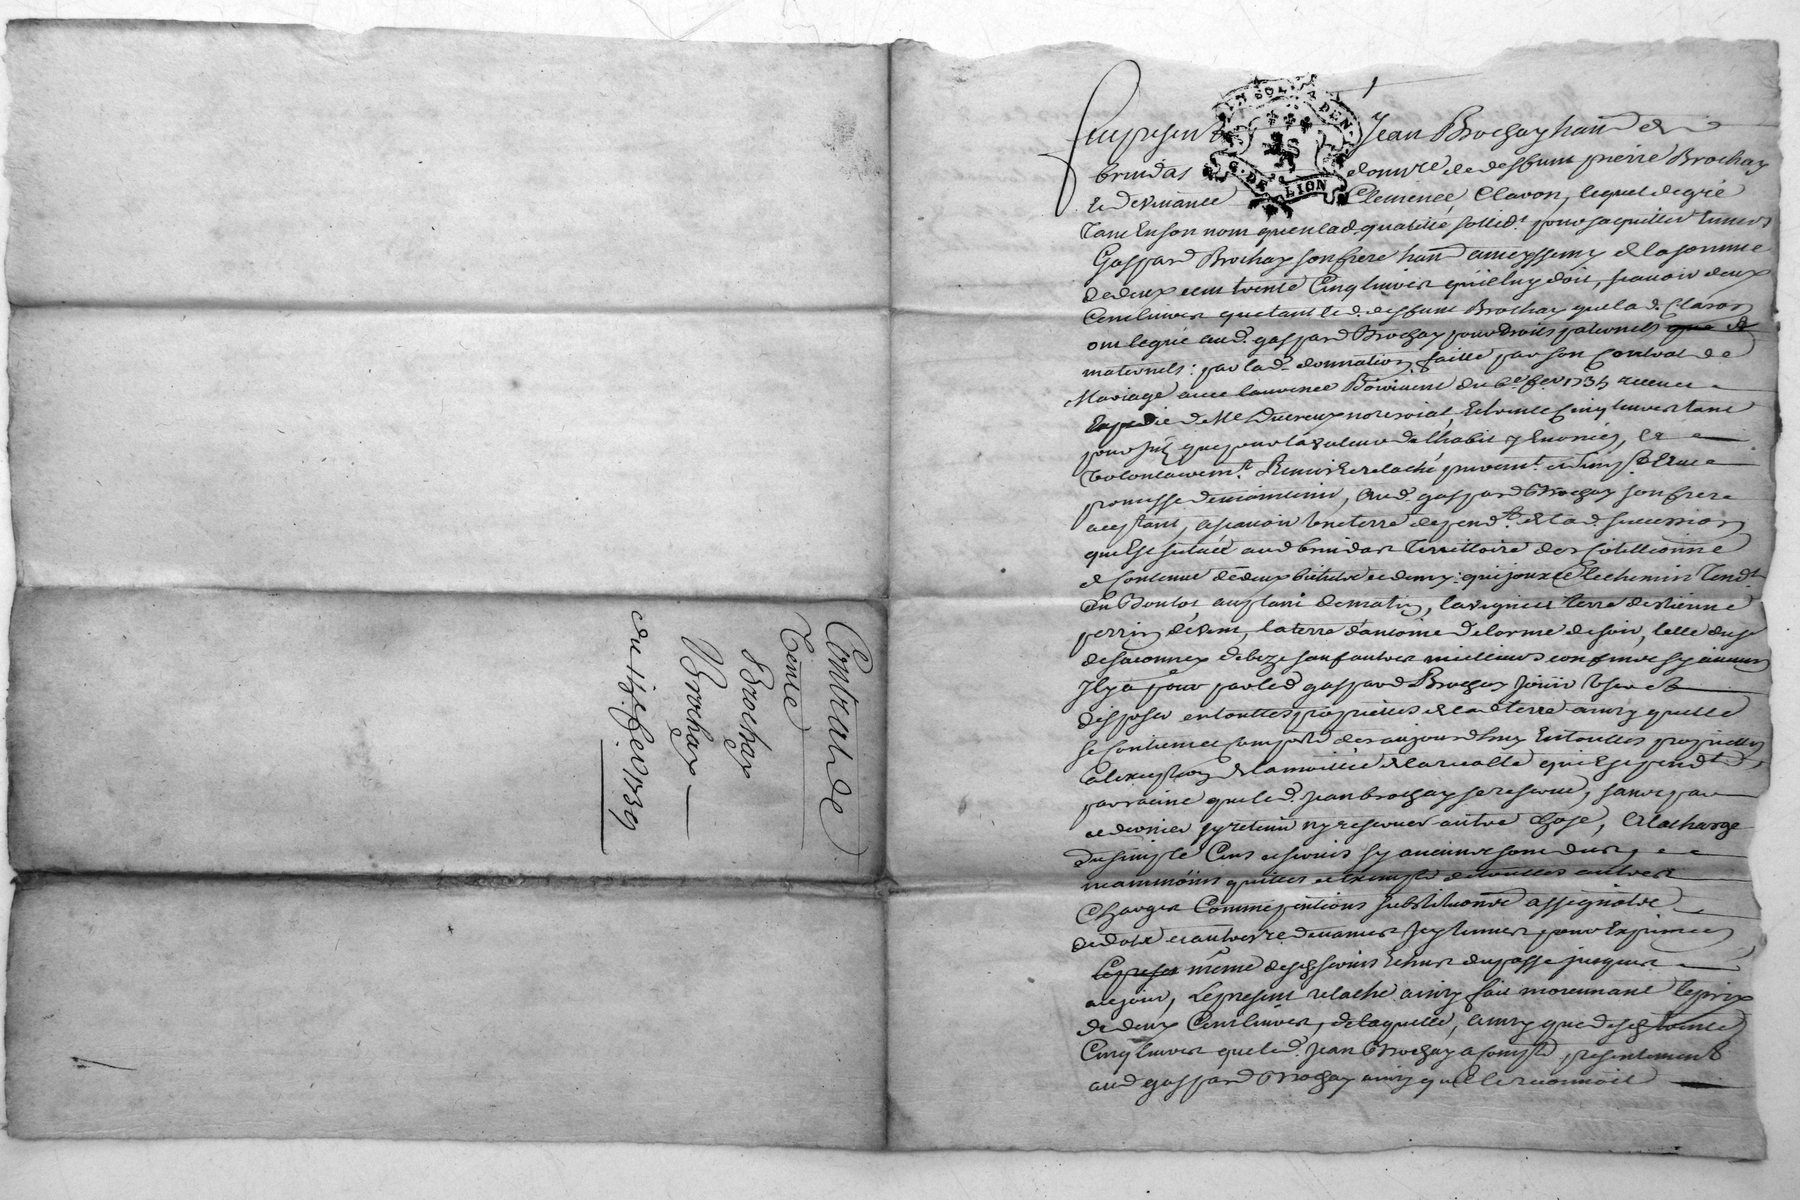 Contrat de
Vente
Brochay
Brochay
du 16e fev. 1739
UN SOL DEN.
G. DE LION
Fut present Jean Brochay hant de
brindas donnre de deffunt pierre Brochay
et devivante Clemence Clavon, lequel de gré
tant en son nom qu'en lad. qualitté sollidt pour s'aquitter envers
Gaspard Brochay son frere hant a messimy de la somme
de deux cent trente cinq livres qu'il luy doit, scavoir deux
cent livres que tant led. deffunt Brochay que la d. Clavon
ont legué aud. gaspard Brochay pour droits paternels que et
maternels: par lad. donnation faitte par son contrat de
Mariage avec laurence du 6e fev. 1735 receu et
expedié de Me Ducreux nore roial, et trente cinq livres tant
pour que pour la valeur de l'habit y enoncé, a
volontairemt. Remis et relaché purement et
promesse de maintenir, aud. gaspard Brochay son frere
aceptant, ascavoir une terre dependte de lad. succession
qui est située aud brindas territoire de
et contenue de deux bicherée et demy: qui jouxte le chemin tendt
au aussi de matin, la vigne et terre d'estienne
perrin de vent, la terre d'antoine Delorme de soir, celle du sr
de bize sauf autres meilleurs confins sy aucuns
Il y a pour par led. gaspard Brochay Jouir user et
disposer en touttes proprietés de lad. terre ainsy quelle
se contient et comporte des aujourdhuy en touttes proprietés
a l'exception de la moittié de la recolte qui est pendte
par racine que led. Jean brochay se reserve, sans par
ce dernier sy retenir ny reserver autre chose, a la charge
du simple cens et servis sy aucuns sont deus
neammoins quitte et exempte de touttes autres
charges comme pentions substitutions assignatte
de dotte et autres
même desd. servis echus du passé jusques
a ce jour, Le present relaché ainsy fait moiennant le prix
de deux cent livres, de laquelle, ainsy que desd. trente
cinq livres que led. Jean Brochay a compté, presentement
aud gaspard Brochay ainsy qu'il le reconnoit